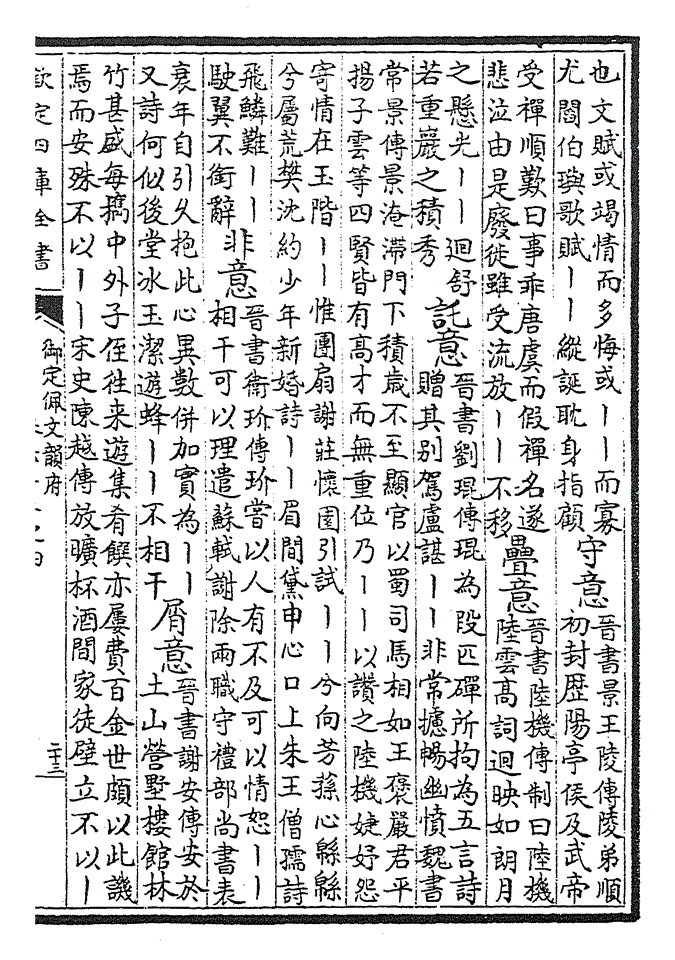 也文賦或竭情而多悔或丨丨而寡
尤閻伯璵歌賦丨丨縱誕耽身指顧
守意
晉書景王陵傳陵弟順
初封歴陽亭侯及武帝
受禪順歎曰事乖唐虞而假禪名遂
悲泣由是廢徙雖受流放丨丨不移
疊意
晉書陸機傳制曰陸機
陸雲高詞迥映如朗月
之懸光丨丨迴舒
若重巖之積秀
託意
晉書劉琨傳琨為段匹磾所拘為五言詩
贈其别駕盧諶丨丨非常攄暢幽憤魏書
常景傳景淹滯門下積歲不至顯官以蜀司馬相如王褒嚴君平
揚子雲等四賢皆有高才而無重位乃丨丨以讚之陸機婕妤怨
寄情在玉階丨丨惟團扇謝莊懷園引試丨丨兮向芳蓀心緜緜
兮屬荒樊沈約少年新婚詩丨丨眉間黛申心口上朱王僧孺詩
飛鱗難丨丨
駛翼不銜辭
非意
晉書衞玠傳玠嘗以人有不及可以情恕丨丨
相干可以理遣蘇軾謝除兩職守禮部尚書表
衰年自引久抱此心異數併加實為丨丨
又詩何似後堂冰玉潔遊蜂丨丨不相干
屑意
晉書謝安傳安於
土山營墅樓館林
竹甚盛每攜中外子侄徃来遊集肴饌亦屢費百金世頗以此譏
焉而安殊不以丨丨宋史陳越傳放曠杯酒間家徒壁立不以丨
欽定四庫全書
御定佩文韻府
二十三